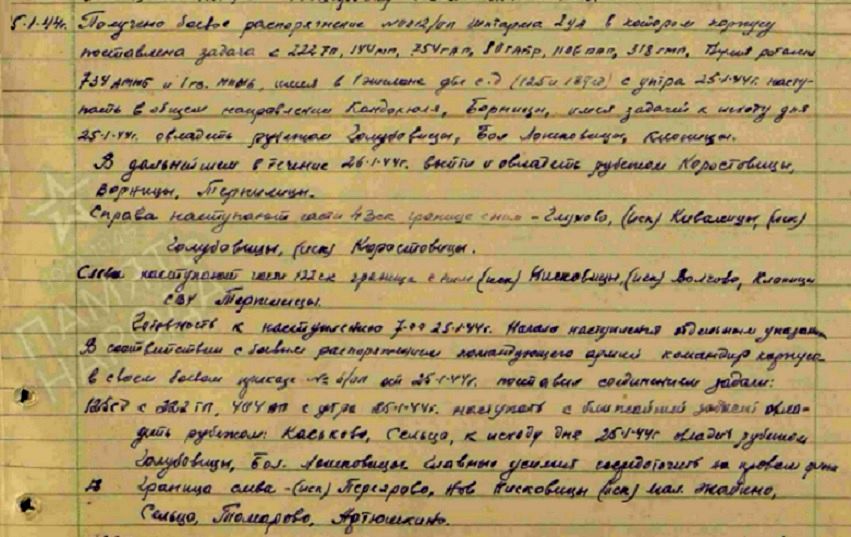 5.1.44г. Получено боевое распоряжение №0012/оп Штарма 2уд в котором корпусу
поставлена задача с 222 ТП, 144 мп, 254 гап, 80 ГАбр, 1106 пап, 318 гмп,
734 и 1 гв. имея в 1 эшелоне две с.д (125 и 189сд) с утра 25.1.44г. насту-
пать в общем направлении Кандокюля, Борницы, имея задачей к исходу дня
25.1.44г. овладеть рубежом Голубовицы, Бол. Ложковицы, Клоницы.
В дальнейшем в течение 26.1.44г. выйти и овладеть рубежом Коростовицы,
Ворницы, Терпилицы.
Справа наступают части 43ск граница с ним - Глухово, (иск) Кивалицы, (иск)
Голубовицы, (иск) Коростовицы.
Слева наступают части 122ск граница с ним (иск) Нисковицы, (иск) Волсово, Клоницы
Терпилицы.
Готовность к наступлению 7-00 25.1.44г. Начало наступления отдельным указан
В соответствии с боевым распоряжением командующего армией командир корпуса
в своем боевом приказе № от 25.1.44г. поставил соединениям задачи:
125сд с 222 ТП, с утра 25.1.44г. наступать с ближайшей задачей овла-
деть рубежом: Каськово, Сельцо, к исходу дня 25.1.44г овладеть рубежом
Голубовицы, Бол. Ложковицы. Главные усилия сосредоточить на правом фланге
Граница слева - (иск) Педлярово, Нов Нисковицы (иск) Мал. Жабино,
Сельцо, Томарово, Артюшкино.
ПАМЯТЬ
НАРОДА